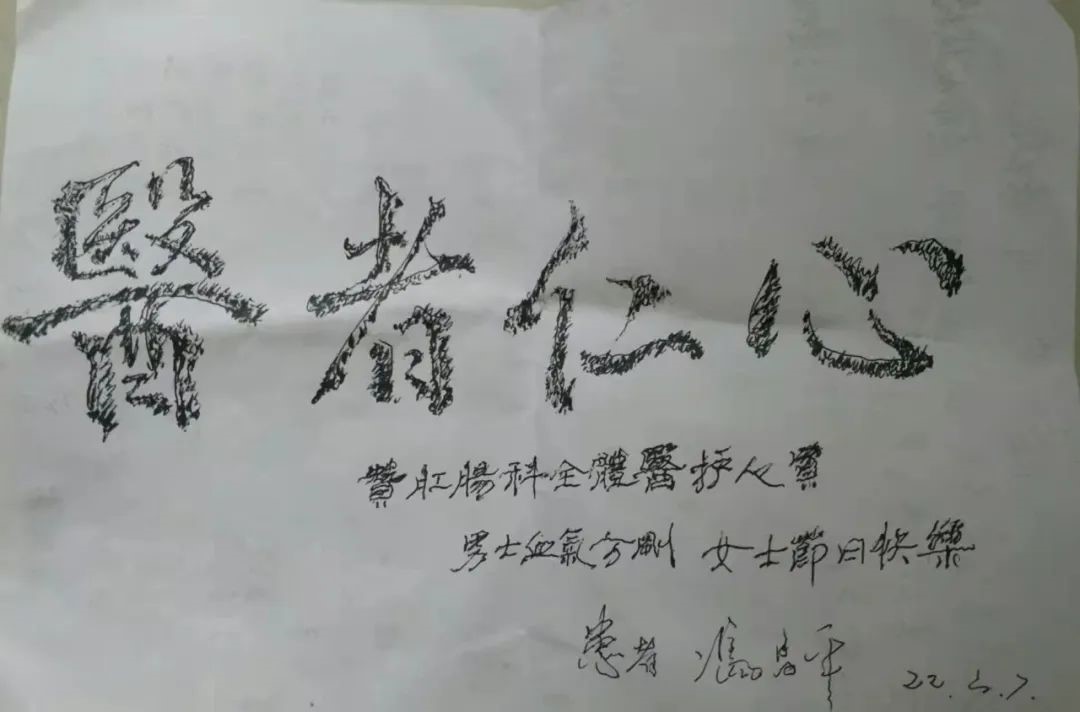 醫者仁心
贊肛腸科全體醫护人員
男士血氣方剛 女士節日快樂
患者 馮
22.3.7.